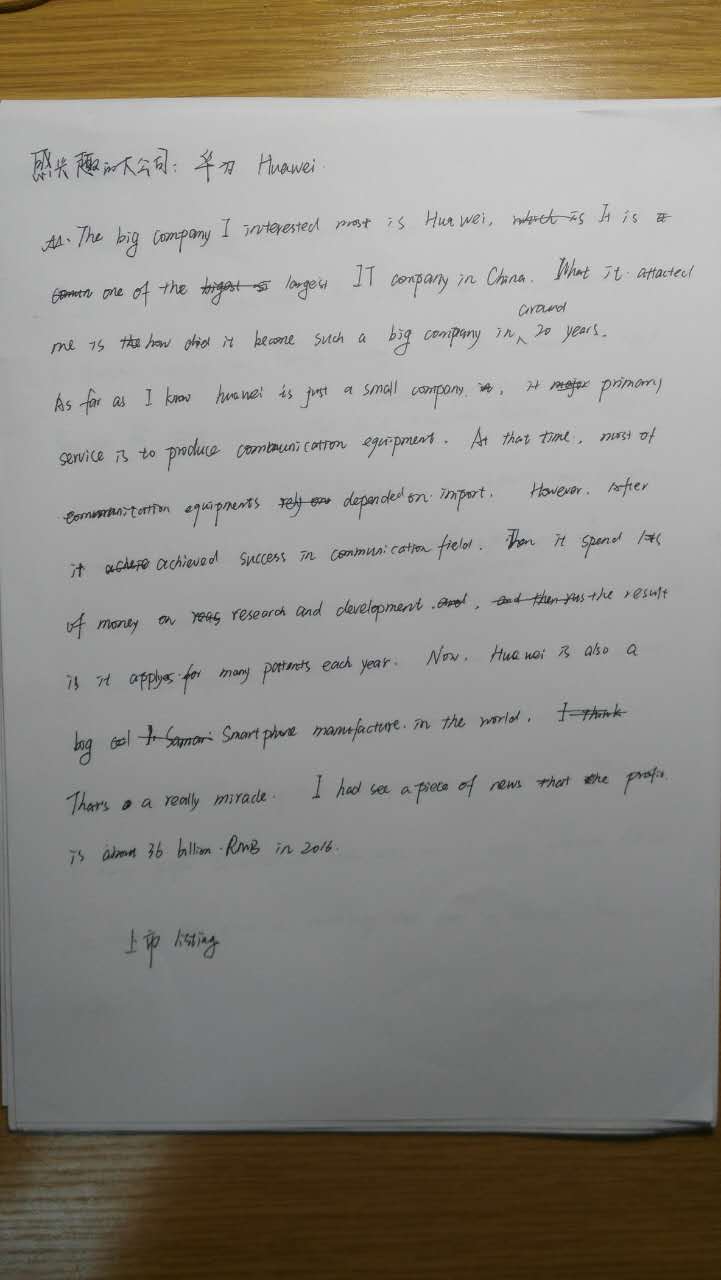 感兴趣的大公司: 华为 Huawei.
A1. The big company I interested most is Huawei, which is It is a
comm one of the bigest largest IT company in China. What it attacted
me is the how did it become such a big company in around 20 years.
As far as I know huawei is just a small company, it major primary
service is to produce communication equipment. At that time, most of
communitation equipments rely on depended on import. However. After
it achieve achieved success in communication field. Then it spend lots
of money on research and development and, and then the result
is it applyes for many patents each year. Now, Huawei is also a
big Smartphone manufacture in the world. I think
That's a really miracle. I had see a piece of news that the profit
is about 36 billion RMB in 2016.
上市 listing